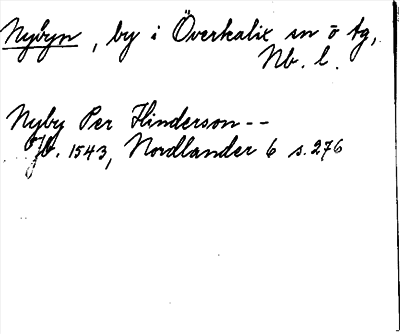 Nybyn, by i Överkalix sn o tg,
Nb. l.
Nyby Per Hinderson--
Jb. 1543, Nordlander 6 s. 276